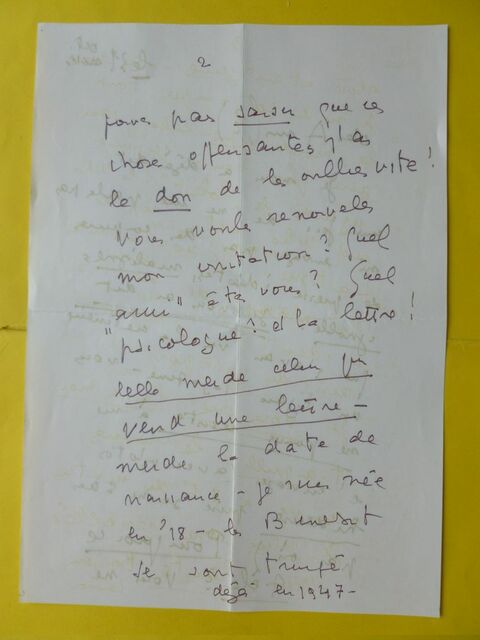 2
pas savoir que ces
choses offensantes j'ai
le don de les oublier vite!
Vous voulez renouveler
mon invitation? Quel
ami" êtes vous? Quel
"psicologue? et la lettre!
merde celui qui
vend une lettre -
merde la date de
naissance - je suis née
en '18 - les
se sont trompé
déjà en 1947 -